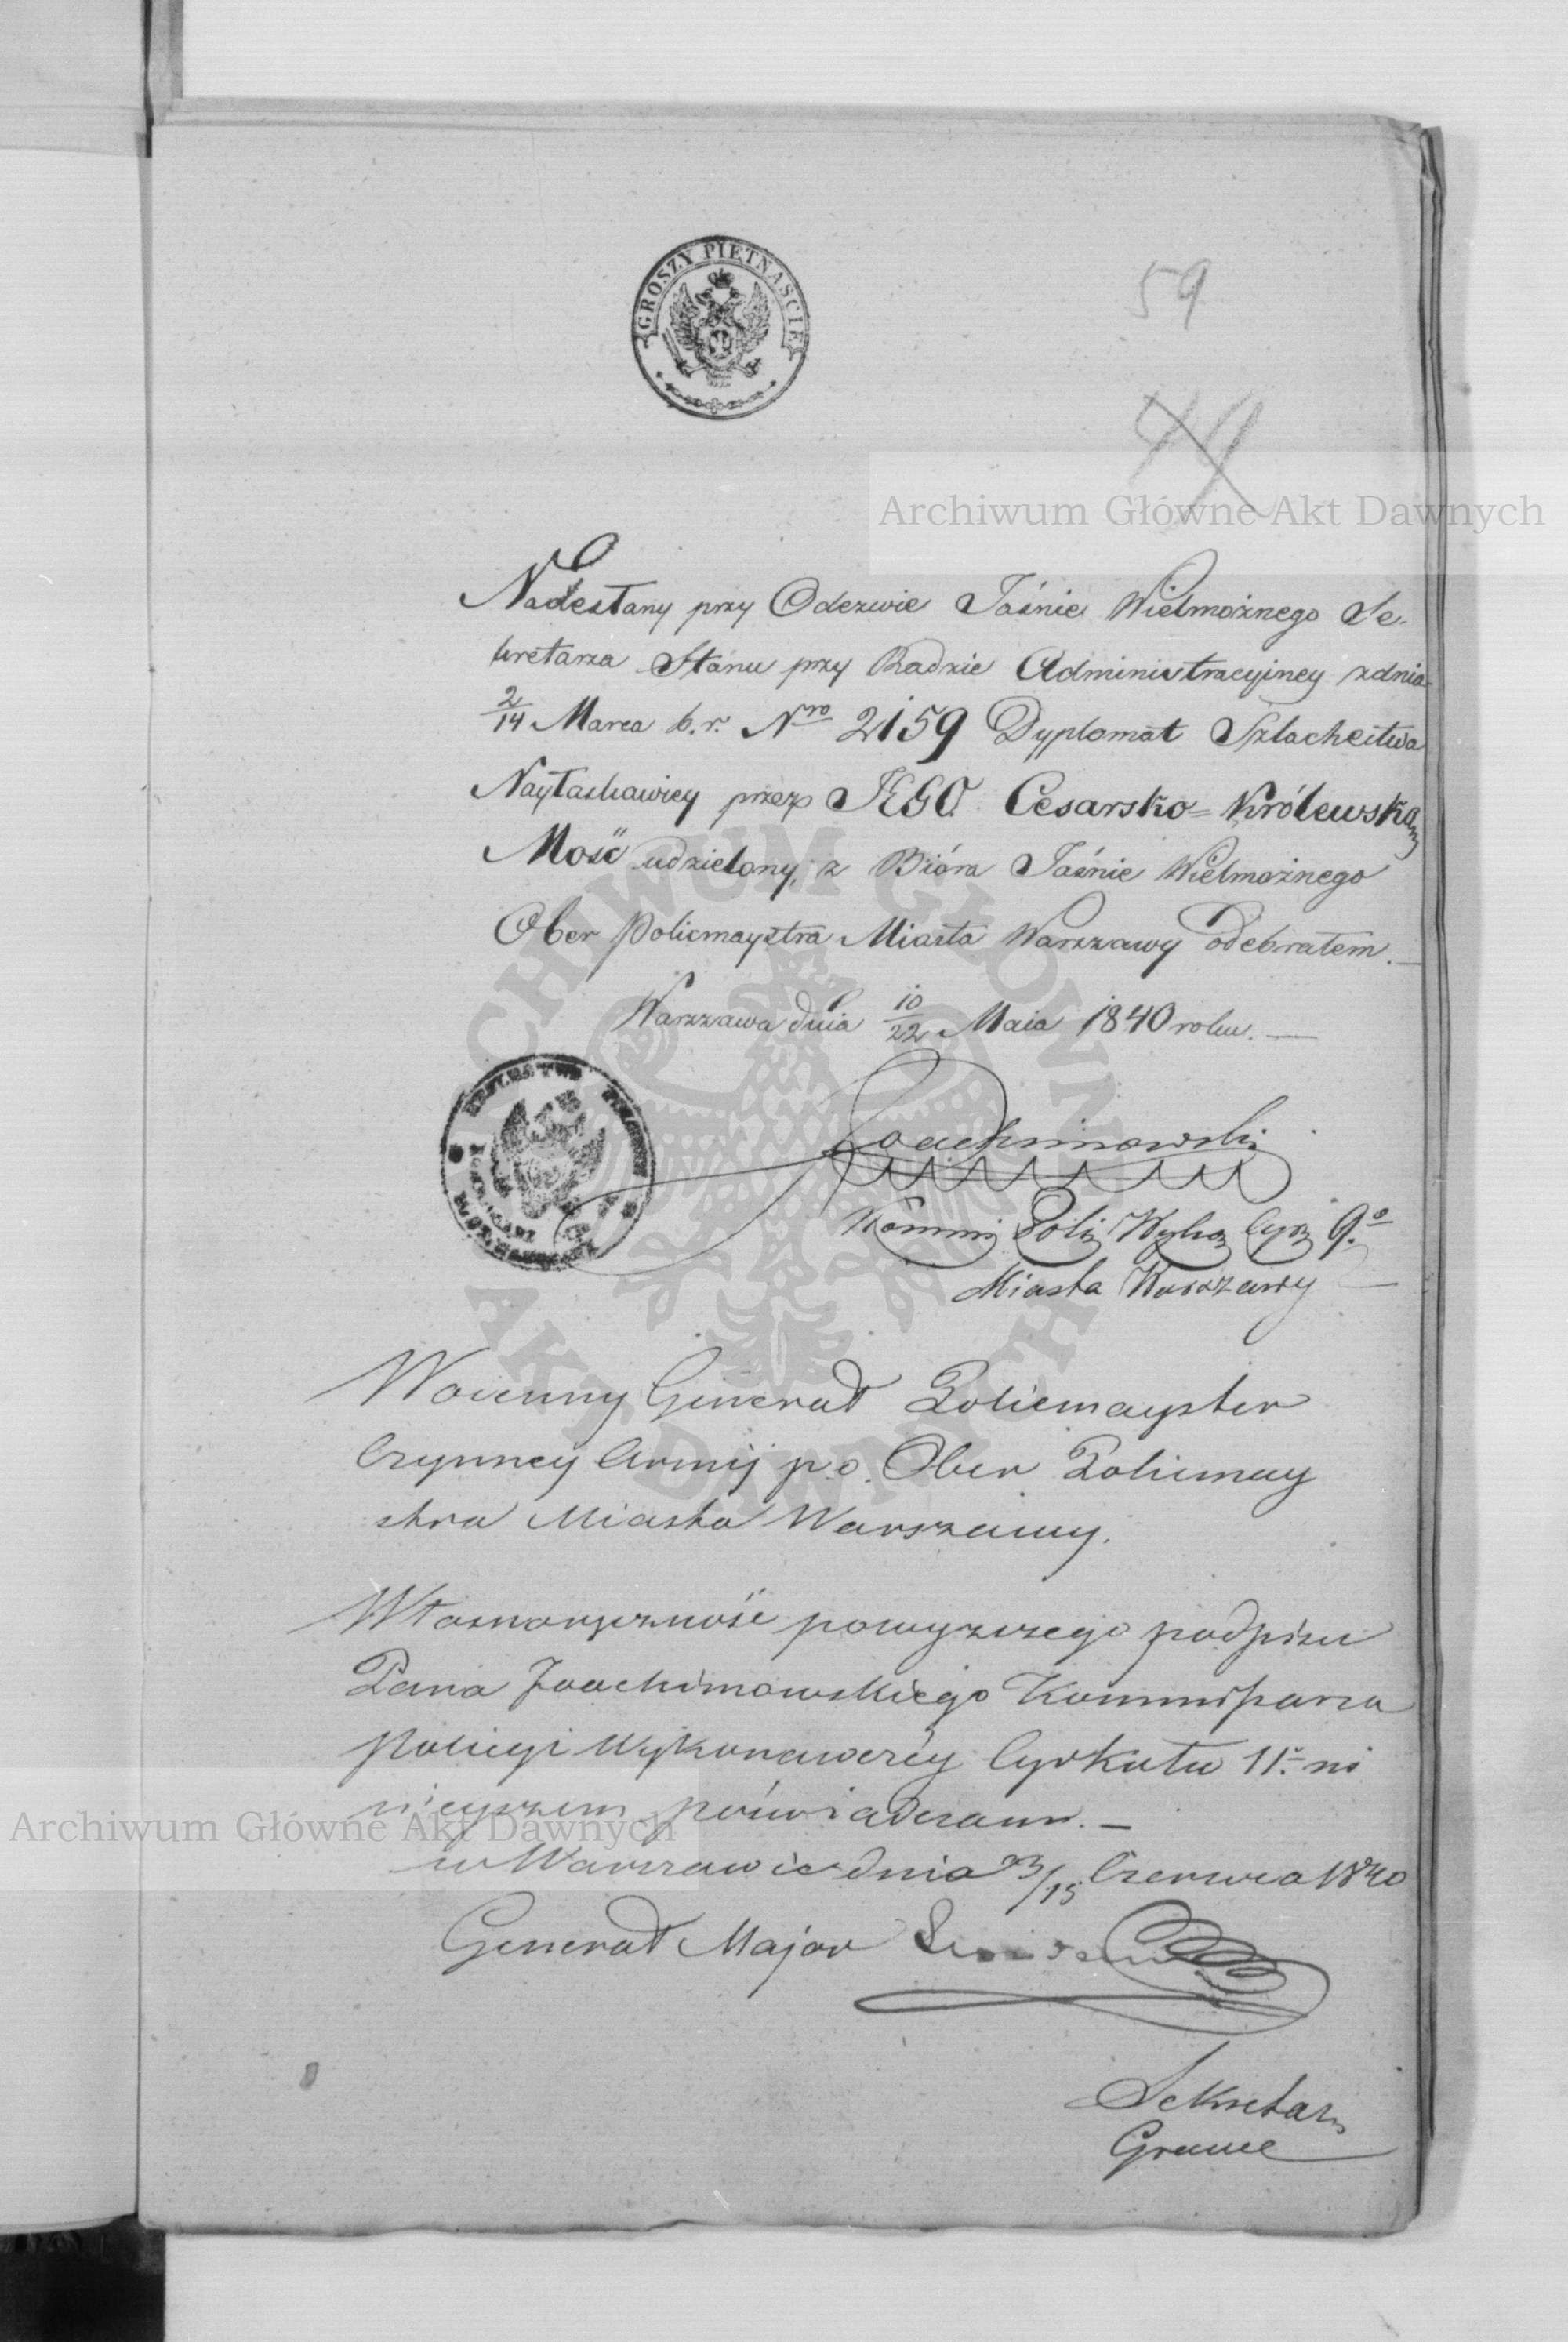 GROSZY PIĘTNAŚCIE
59
Archiwum Główne Akt Dawnych
Nadesłany przy Odezwie Jaśnie Wielmożnego Se-
kretarza Stanu przy Radzie Administracyiney z dnia
2/14 Marca b.r. Nro 2159 Dyplomat Szlachectwa
Nayłaskawiey przez JEGO Cesarsko=Królewską
Mość udzielony, z Bióra Jaśnie Wielmożnego
Ober Policmaystra Miasta Warszawy odebrałem.—
Warszawa dnia 10/22 Maia 1840 roku.—
Joachimowski
Kommis Polic Wykoz Cyrk 9.o
Miasta Warszawy
Woienny Generał Policmayster
Czynney Armij p.o. Ober Policmay
stra Miasta Warszawy.
Własnoręczność powyższego podpisu
Pana Joachimowskiego Kommissarza
Policyi Wykonawczéy Cyrkułu 11. ni
nieyszem poświadczam.—
w Warszawie dnia 3/15 Czerwca 1840
Generał Major
Sekretarz
ARCHIWUM GŁÓWNE
AKT DAWNYCH
Archiwum Główne Akt Dawnych